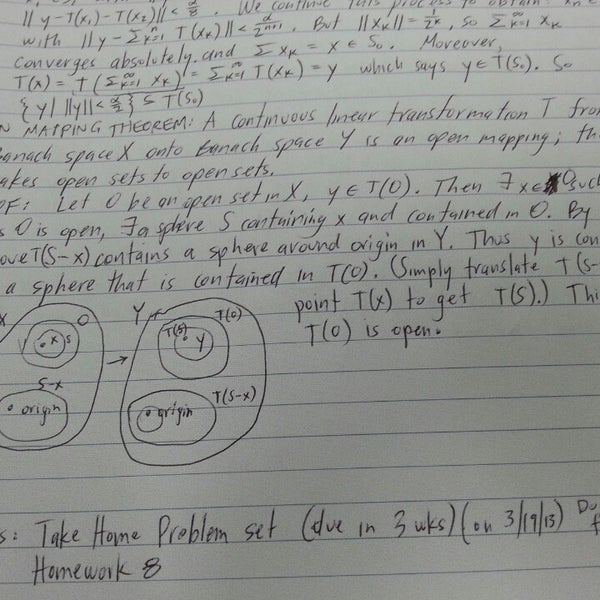 || y - T(x₁) - T(x₂) || < α/8 . We continue this process to obtain
with || y - Σₖ₌₁ⁿ T(xₖ) || < α/2ⁿ⁺¹ . But || xₖ || = 1/2ᵏ, so Σₖ₌₁^∞ xₖ
converges absolutely. and Σ xₖ = x ∈ S₀. Moreover,
T(x) = T(Σₖ₌₁^∞ xₖ) = Σₖ₌₁^∞ T(xₖ) = y which says y ∈ T(S₀). So
{y | ||y|| < α/2} ⊆ T(S₀)
N MAPPING THEOREM: A continuous linear transformation T from
Banach space X onto Banach space Y is an open mapping; th
akes open sets to open sets.
OF: Let O be an open set in X, y ∈ T(O). Then ∃ x ∈ O such
s O is open, ∃ a sphere S containing x and contained in O. By
ove T(S-x) contains a sphere around origin in Y. Thus y is con
a sphere that is contained in T(O). (Simply translate T(S-
point T(x) to get T(S).) Thi
T(O) is open.
X O Y T(O)
x S T(S) y
S-x T(S-x)
origin origin
s: Take Home Problem set (due in 3 wks) (on 3/19/13) Du
Homework 8